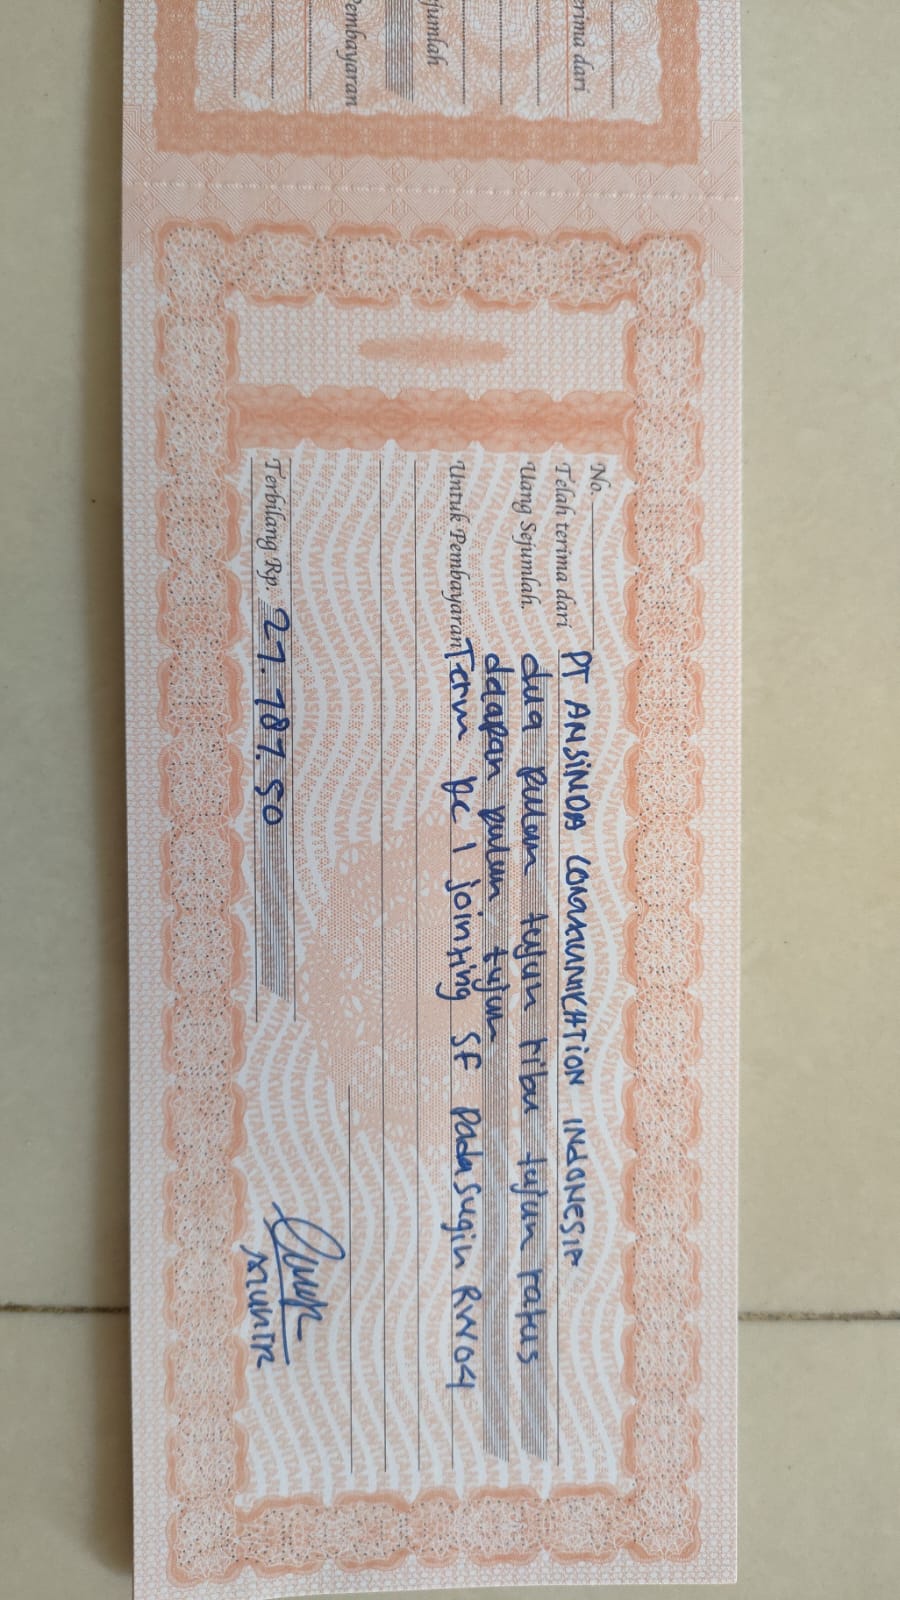 erima dari
ejumlah
Pembayaran
No.
Telah terima dari PT ANSINDA COMMUNICATION INDONESIA
Uang Sejumlah. dua puluh tujuh ribu tujuh ratus
delapan puluh tujuh
Untuk Pembayaran Term pc 1 jointing SF Padasugih RW04
Terbilang Rp. 27.787.50
MUNIR